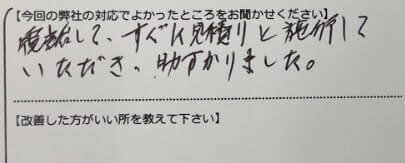 【今回の弊社の対応でよかったところをお聞かせください】
して、すぐに見積りと施行して
いただき、助かりました。
【改善した方がいい所を教えて下さい】